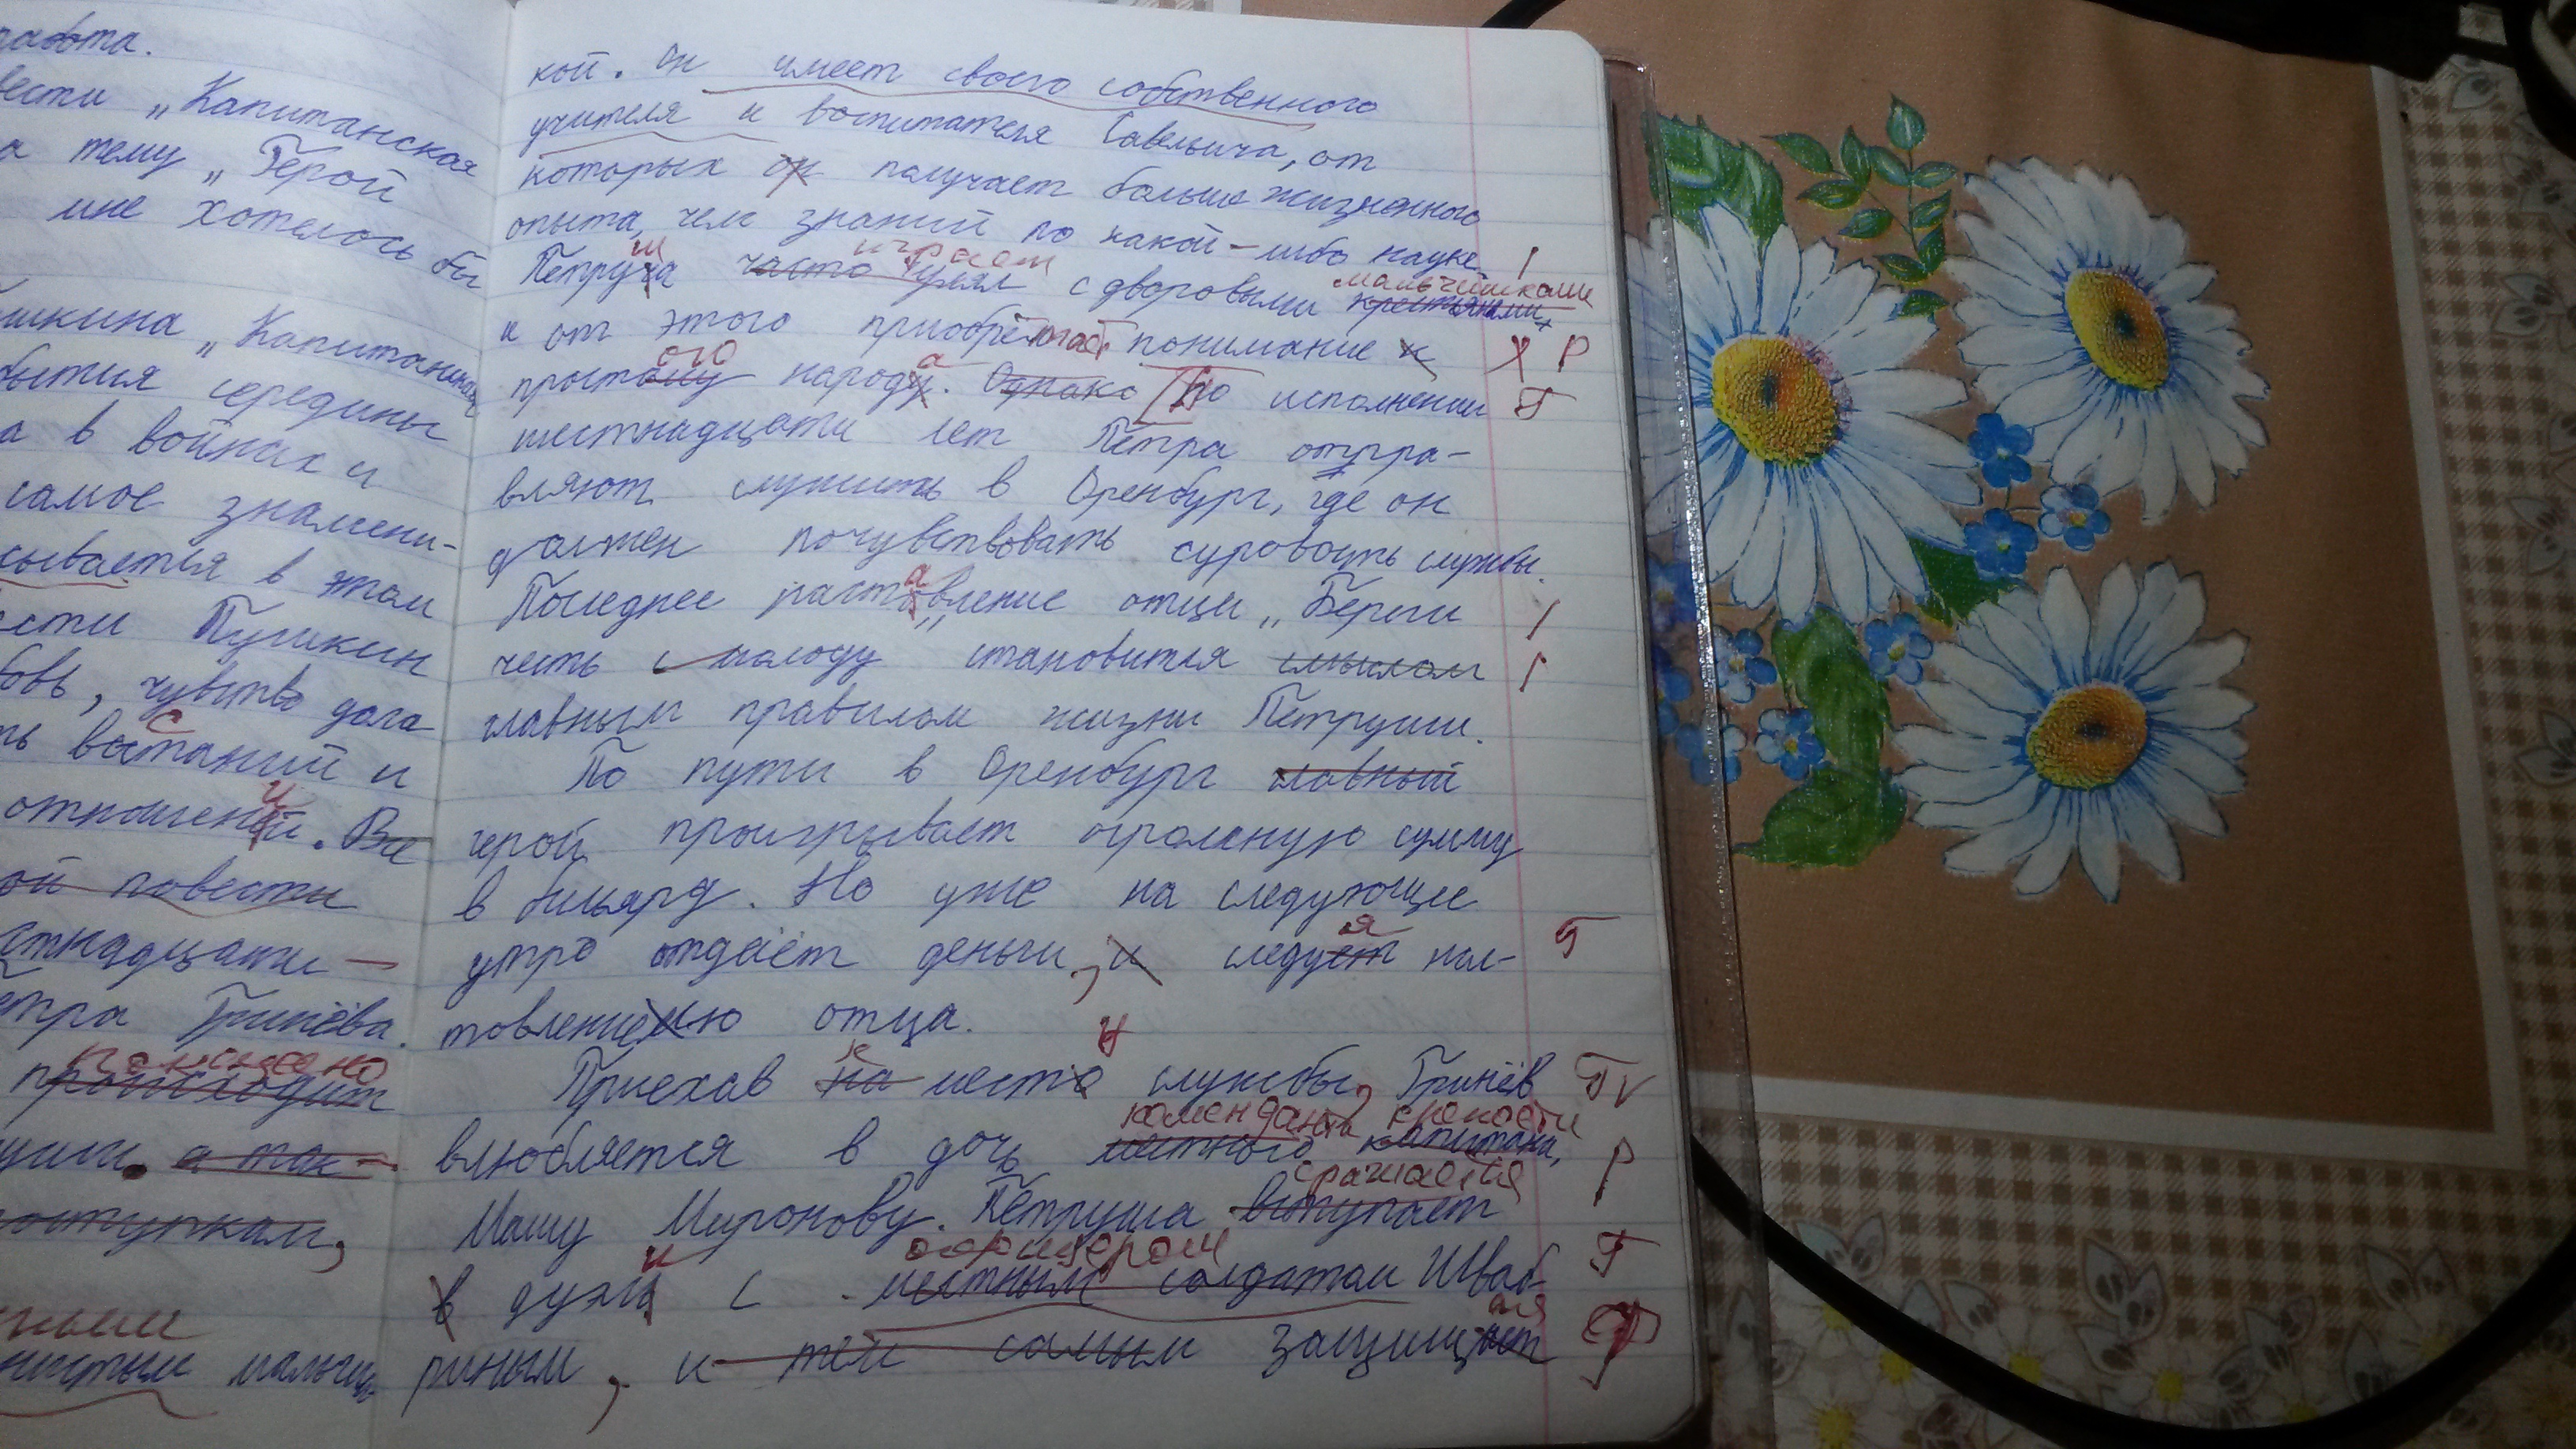 работа.
вести „Капитанская
а тему „Герой
мне хотелось бы
шкина „Капитанская
бытия середины
а в войнах и
самое знамени-
сывается в этом
ести Пушкин
бовь, чувство долга
с
ть востаний и
и
отношений. Вс
ой повести
стнадцати
етра Гринёва.
показано
происходит
а так-
поступкам,
ным
нистым мальчи-
кой. Он имеет своего собственного
учителя и воспитателя Савельича, от
которых он получает больше жизненного
опыта, чем знаний по какой-либо науке.
ш играет мальчишками
Петруча часто гулял с дворовыми крестьянами
и от этого приобретает понимание к
ого а
простому народу. Однако По исполнении
шестнадцати лет Петра отпра-
вляют служить в Оренбург, где он
должен почувствовать суровость службы.
а
Последнее настовление отца „Береги
честь с молоду становится смыслом
главным правилом жизни Петруши.
По пути в Оренбург главный
герой проигрывает огромную сумму
в бильярд. Но уже на следующее
я
утро отдаёт деньги, и следует нас-
товлению отца.
к у
Приехав на место службы, Гринёв
коменданта крепости
влюбляется в дочь местного капитана,
сражается
Машу Миронову. Петруша вступает
и офицером
в дуэль с местным солдатом Шваб-
ая
риным, и тем самым защищает